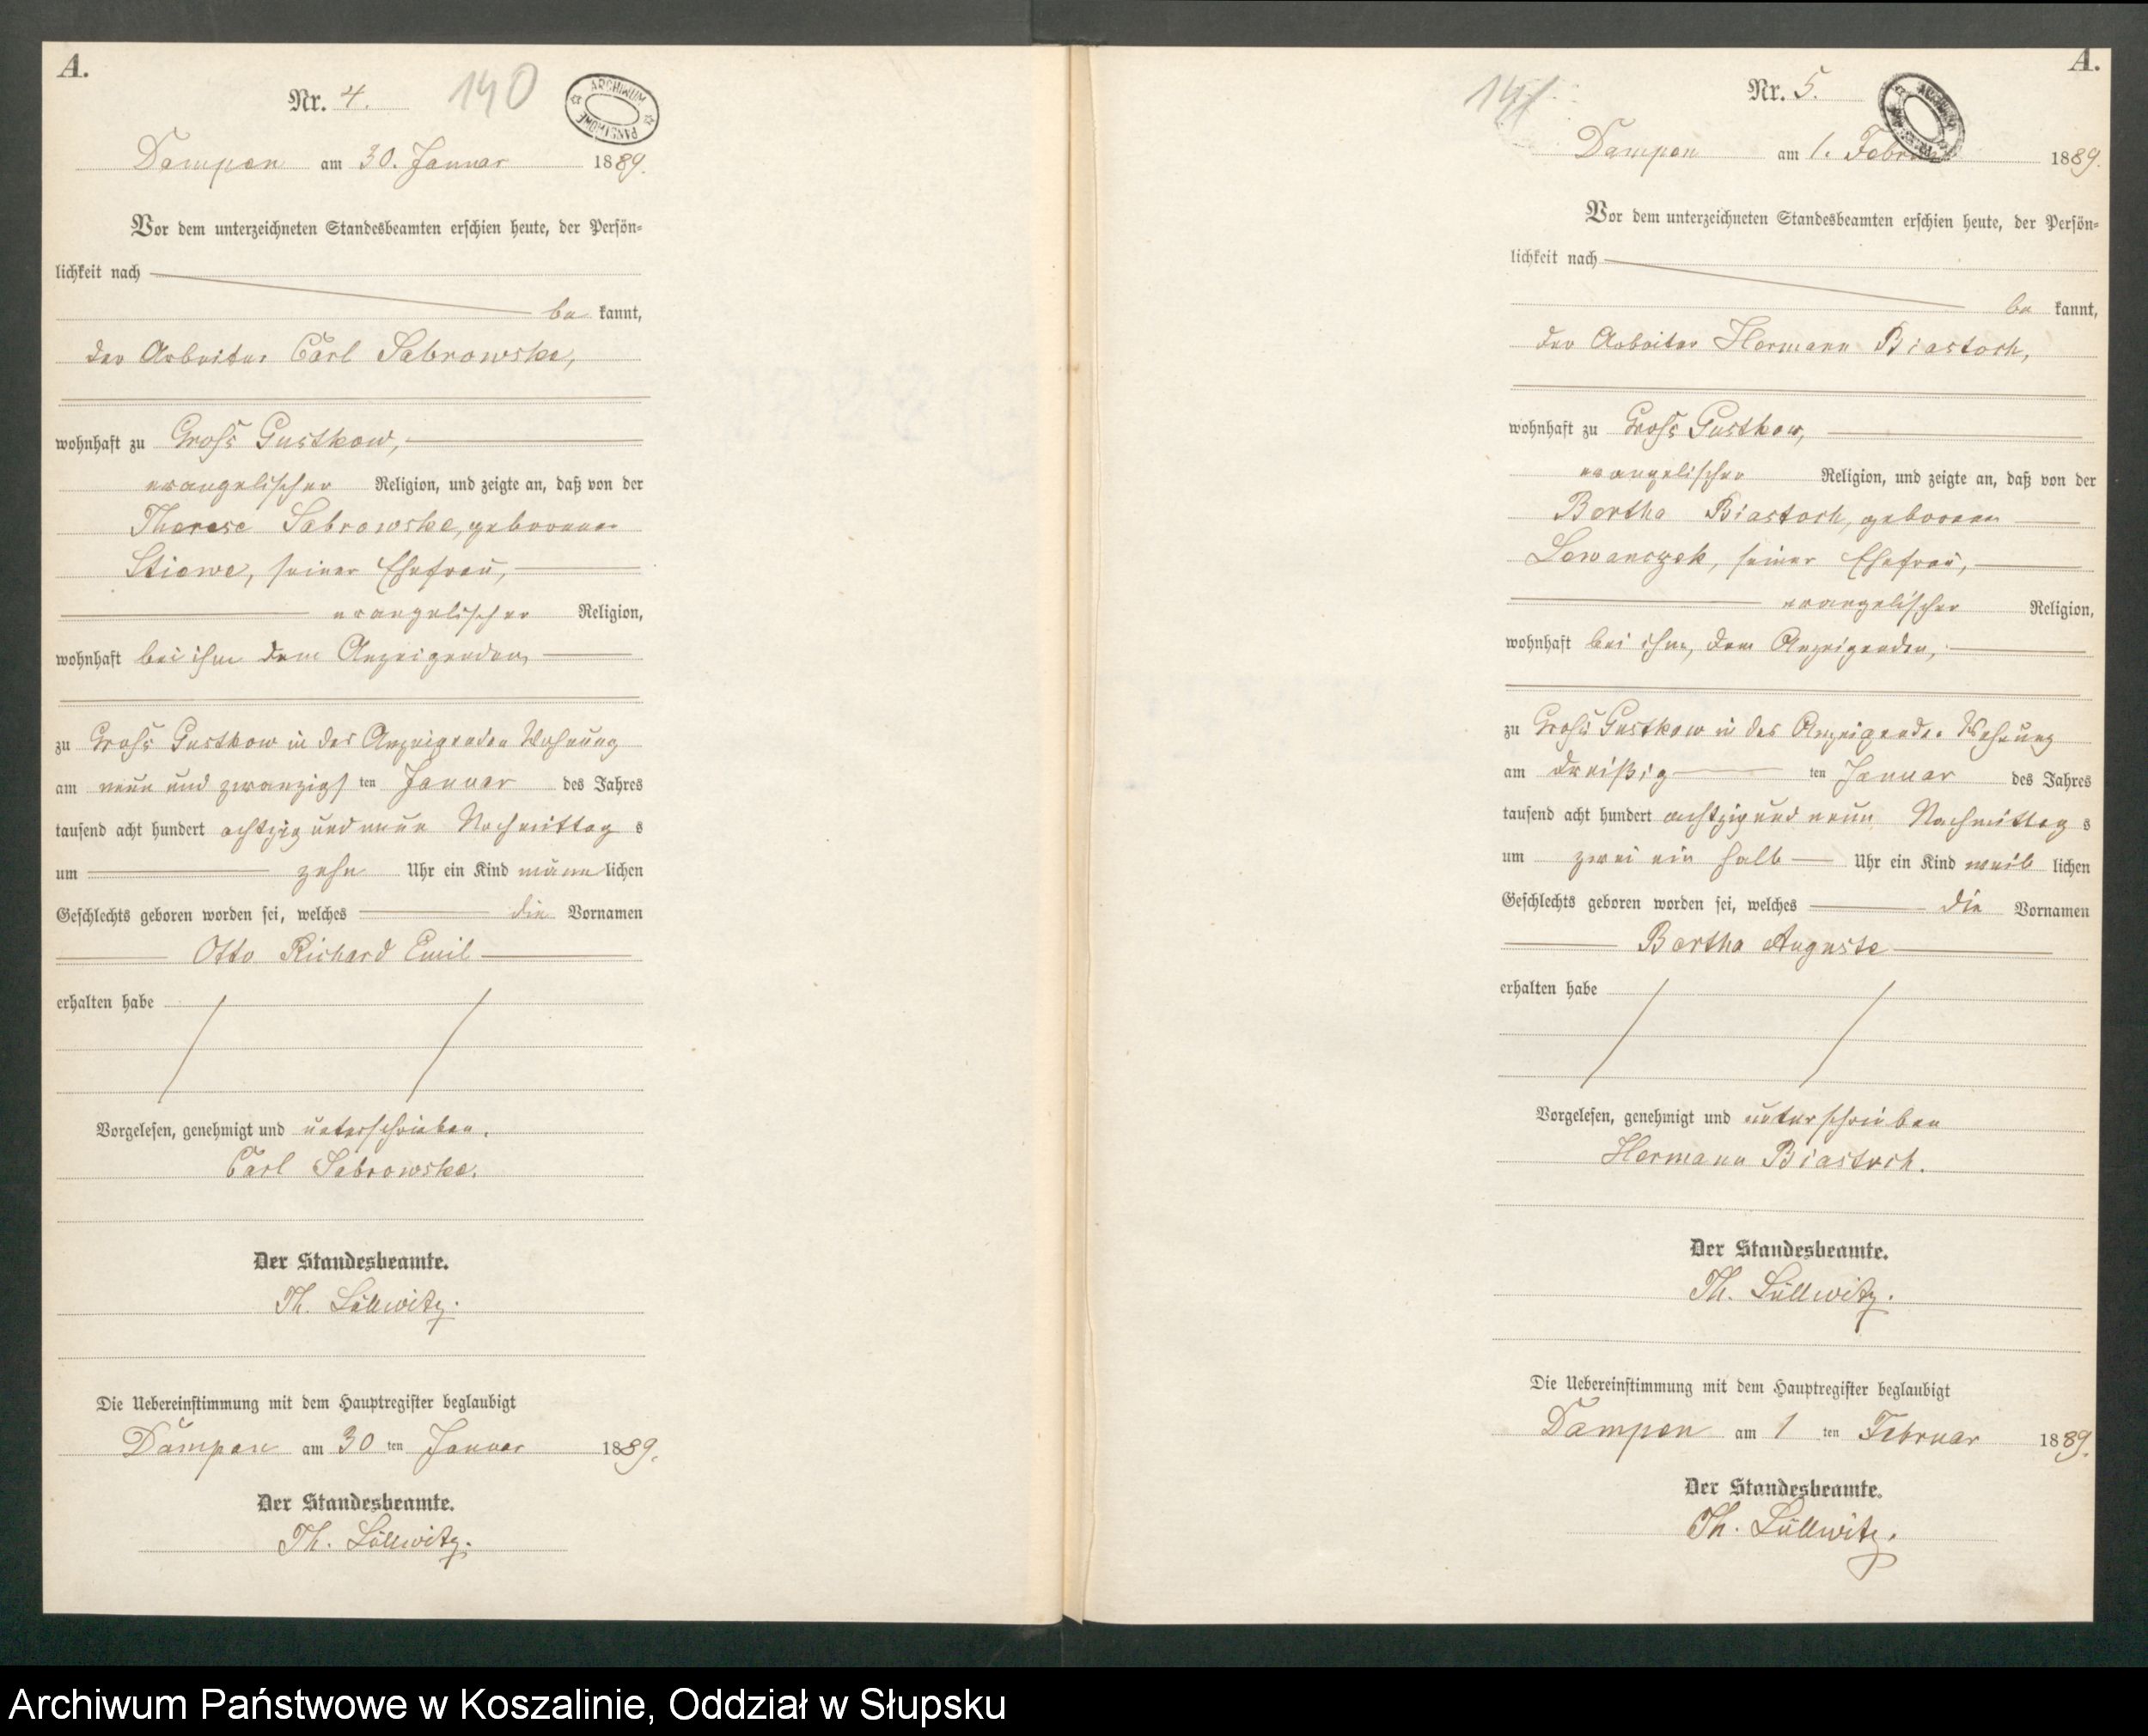 A.
Nr. 4.
140
ARCHIWUM PAŃSTWOWE
Dampen am 30. Januar 1889.
Vor dem unterzeichneten Standesbeamten erschien heute, der Persön=
lichkeit nach
be kannt,
der Arbeiter Carl Sabrowske,
wohnhaft zu Gross Gustkow,
evangelischer Religion, und zeigte an, daß von der
Therese Sabrowske, geborenen
Stiewe, seiner Ehefrau,
evangelischer Religion,
wohnhaft bei ihm dem Anzeigenden,
zu Gross Gustkow in des Anzeigenden Wohnung
am neun und zwanzigs ten Januar des Jahres
tausend acht hundert achtzig und neun Nachmittag s
um zehn Uhr ein Kind männ lichen
Geschlechts geboren worden sei, welches die Vornamen
Otto Richard Emil
erhalten habe
Vorgelesen, genehmigt und unterschrieben.
Carl Sabrowske.
Der Standesbeamte.
Th. Lüllwitz.
Die Uebereinstimmung mit dem Hauptregister beglaubigt
Dampen am 30 ten Januar 1889.
Der Standesbeamte.
Th. Lüllwitz.
A.
141
Nr. 5.
ARCHIWUM PAŃSTWOWE
Dampen am 1. Februar 1889.
Vor dem unterzeichneten Standesbeamten erschien heute, der Persön=
lichkeit nach
be kannt,
der Arbeiter Hermann Biastoch,
wohnhaft zu Gross Gustkow,
evangelischer Religion, und zeigte an, daß von der
Bertha Biastoch, geborenen
Lewanczek, seiner Ehefrau,
evangelischer Religion,
wohnhaft bei ihm, dem Anzeigenden,
zu Gross Gustkow in des Anzeigenden Wohnung
am dreißig ten Januar des Jahres
tausend acht hundert achtzig und neun Nachmittag s
um zwei ein halb Uhr ein Kind weib lichen
Geschlechts geboren worden sei, welches die Vornamen
Bertha Auguste
erhalten habe
Vorgelesen, genehmigt und unterschrieben
Hermann Biastoch.
Der Standesbeamte.
Th. Lüllwitz.
Die Uebereinstimmung mit dem Hauptregister beglaubigt
Dampen am 1 ten Februar 1889.
Der Standesbeamte.
Th. Lüllwitz.
Archiwum Państwowe w Koszalinie, Oddział w Słupsku